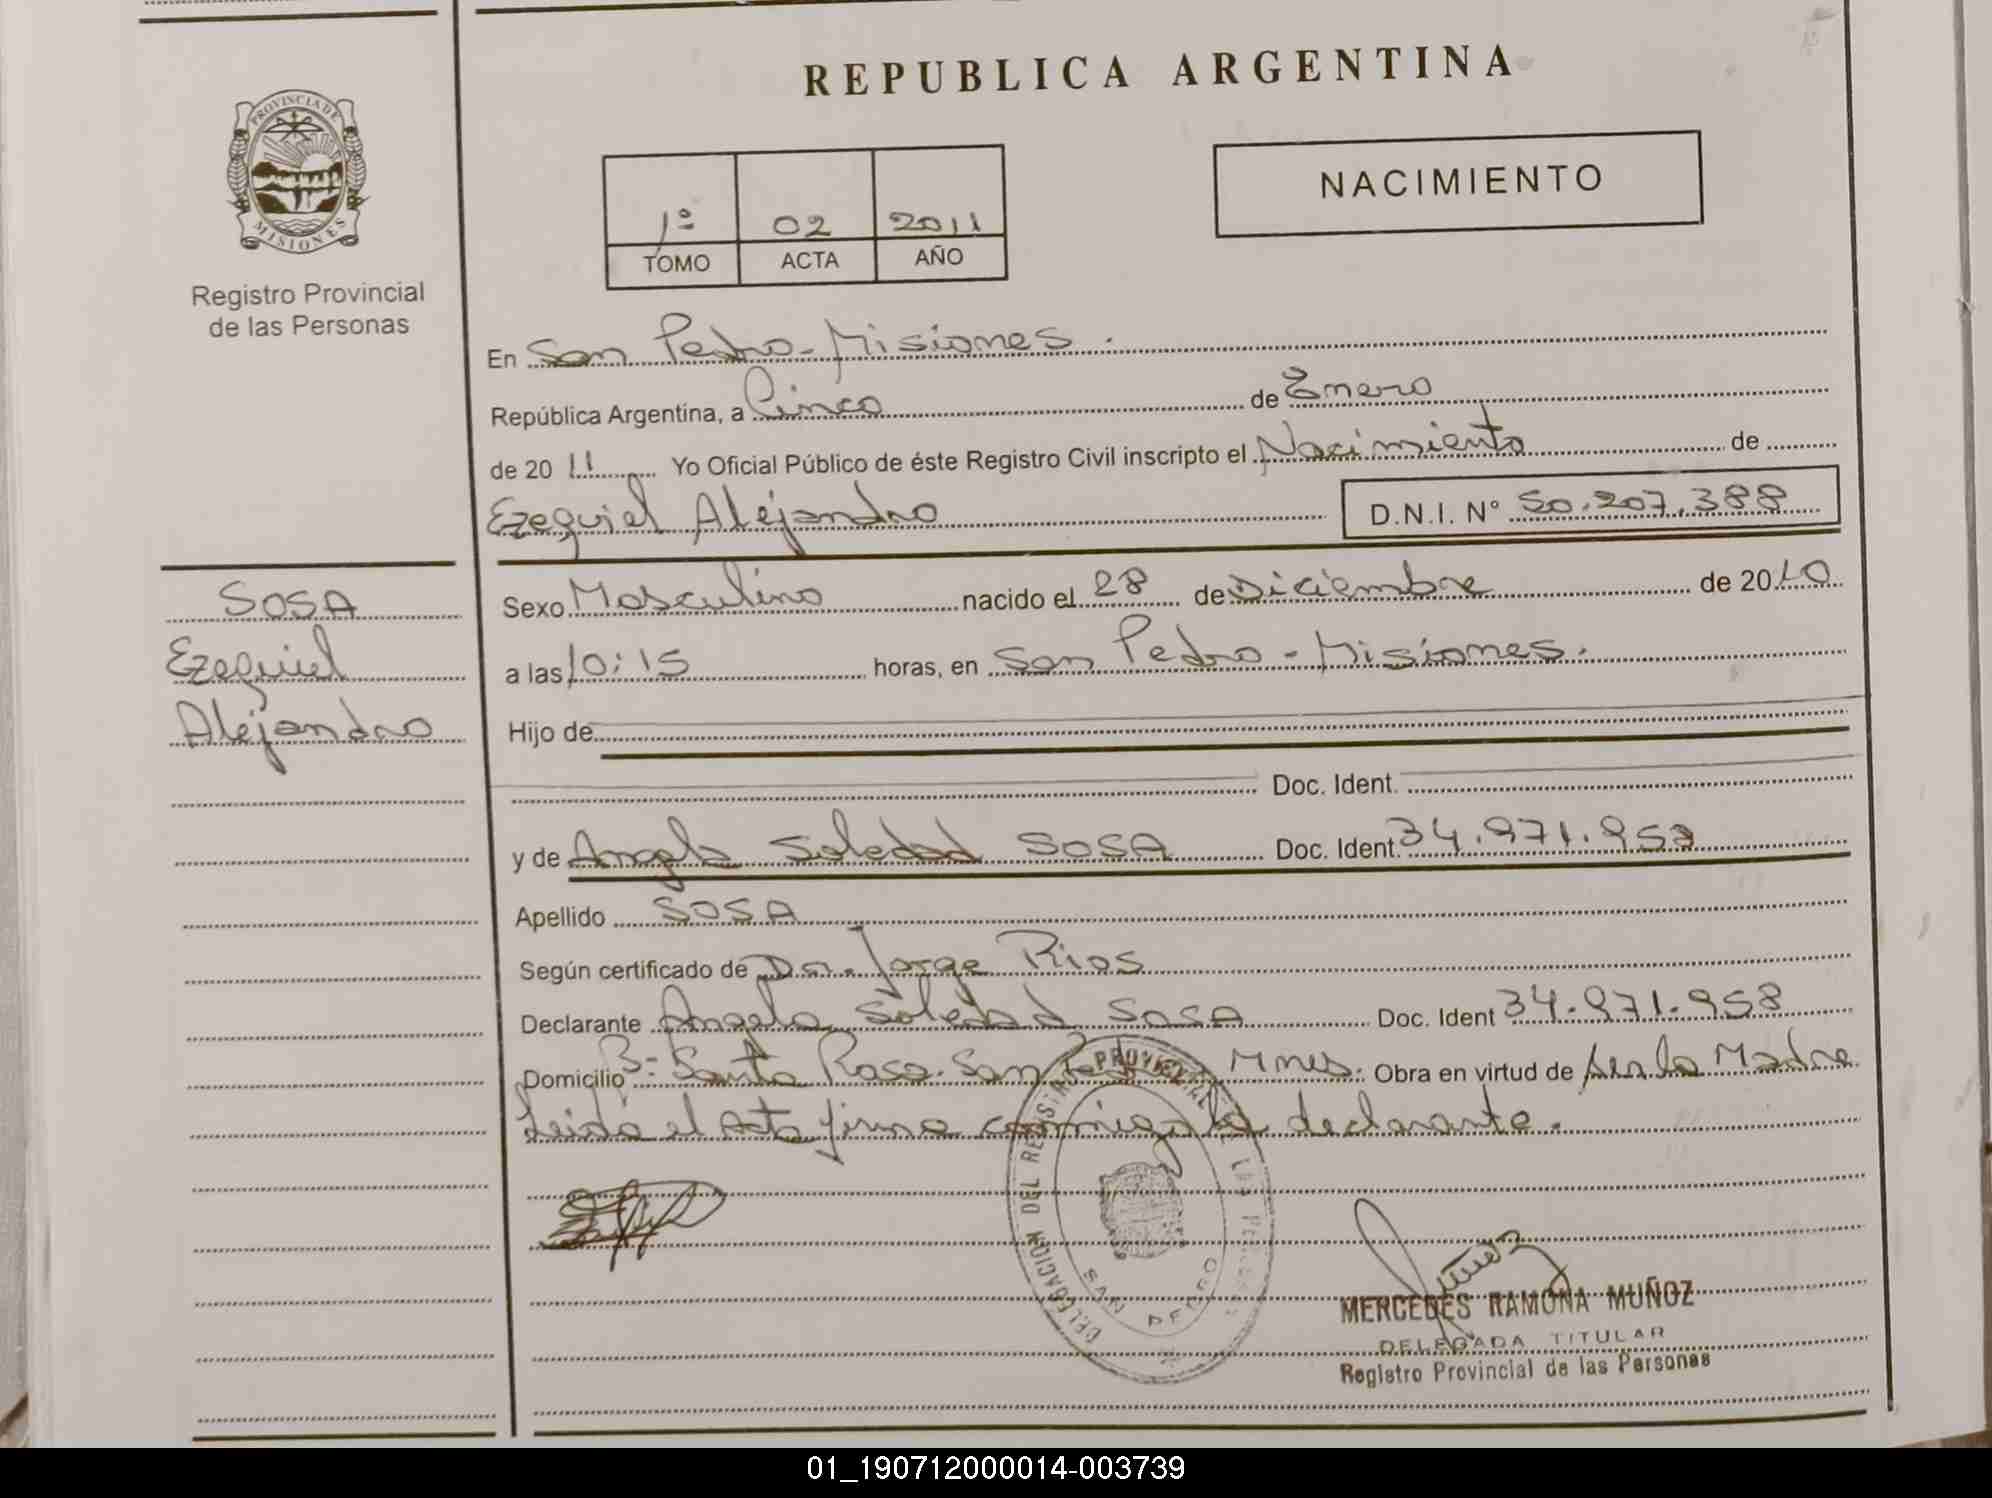 REPUBLICA ARGENTINA
PROVINCIA DE
MISIONES
Registro Provincial
de las Personas
1º 02 2011
TOMO ACTA AÑO
NACIMIENTO
En San Pedro - Misiones.
República Argentina, a Cinco de Enero
de 20 11 Yo Oficial Público de éste Registro Civil inscripto el Nacimiento de
Ezequiel Alejandro D.N.I. Nº 50.207.388
SOSA
Ezequiel
Alejandro
Sexo Masculino nacido el 28 de Diciembre de 2010
a las 10:15 horas, en San Pedro - Misiones.
Hijo de
Doc. Ident.
y de Angela Soledad SOSA Doc. Ident. 34.971.958
Apellido SOSA
Según certificado de Dr. Jorge Rios
Declarante Angela Soledad SOSA Doc. Ident 34.971.958
Domicilio Bº Santa Rosa. San Pedro Mnes. Obra en virtud de ser la Madre
Leida el Acta firma conmigo la declarante.
DELEGACION DEL REGISTRO PROVINCIAL DE LAS PERSONAS
SAN PEDRO
MERCEDES RAMONA MUÑOZ
DELEGADA TITULAR
Registro Provincial de las Personas
01_190712000014-003739